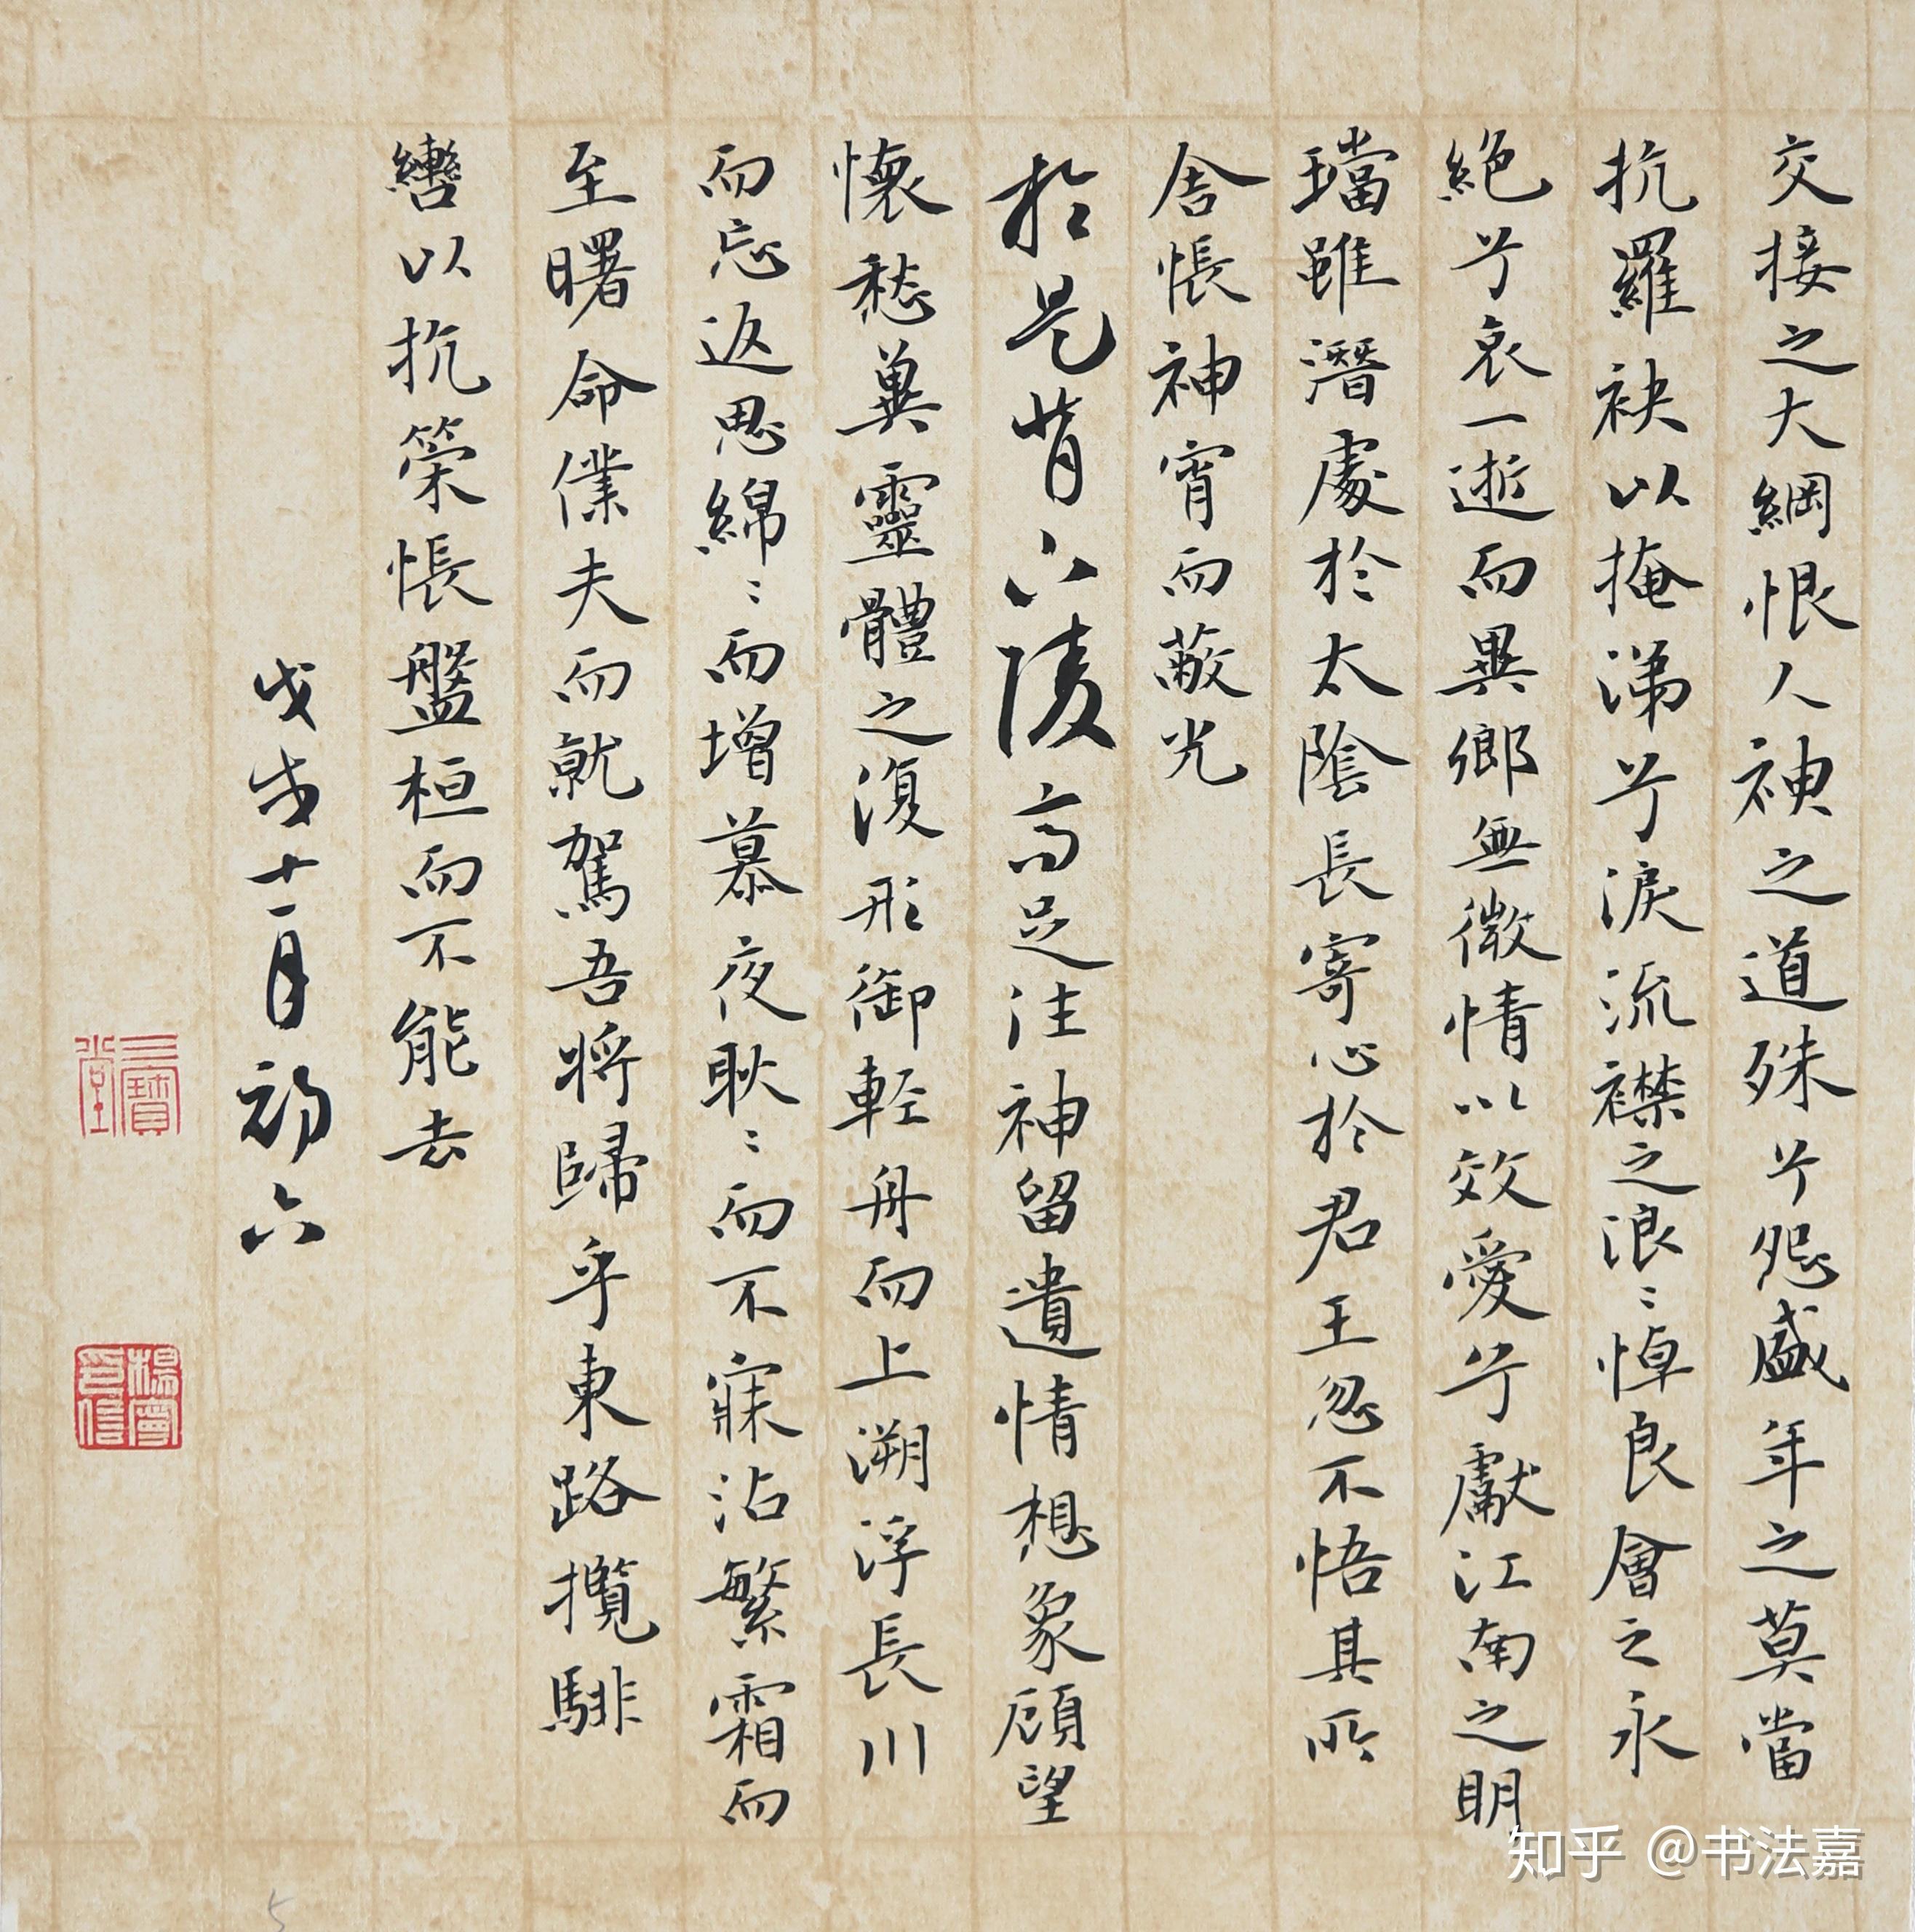 交接之大綱恨人神之道殊兮怨盛年之莫當
抗羅袂以掩涕兮淚流襟之浪〻悼良會之永
絕兮哀一逝而異鄉無微情以效愛兮獻江南之明
璫雖潛處於太陰長寄心於君王忽不悟其所
舍悵神宵而蔽光
於是背下陵高足往神留遺情想象顧望
懷愁冀靈體之復形御輕舟而上溯浮長川
而忘返思綿〻而增慕夜耿〻而不寐沾繁霜而
至曙命僕夫而就駕吾將歸乎東路攬騑
轡以抗策悵盤桓而不能去
戊戌十一月初六
三寶堂
楊寧印信
5
知乎 @书法嘉